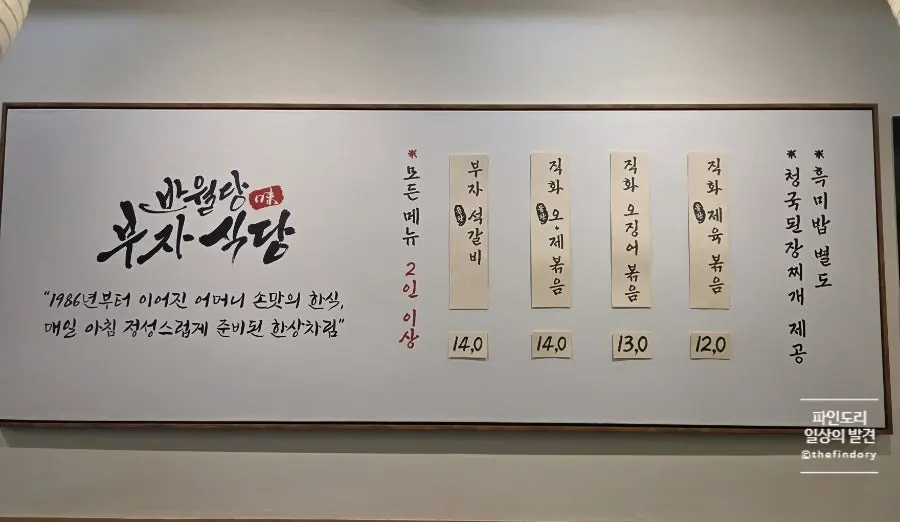 반월당 味
부자식당
"1986년부터 이어진 어머니 손맛의 한식,
매일 아침 정성스럽게 준비된 한상차림"
※모든메뉴 2인 이상
부자 석갈비
14,0
직화 오,제볶음
14,0
직화 오징어볶음
13,0
직화 제육 볶음
12,0
※흑미밥 별도
※청국된장찌개 제공
파인도리
일상의 발견
©thefindory